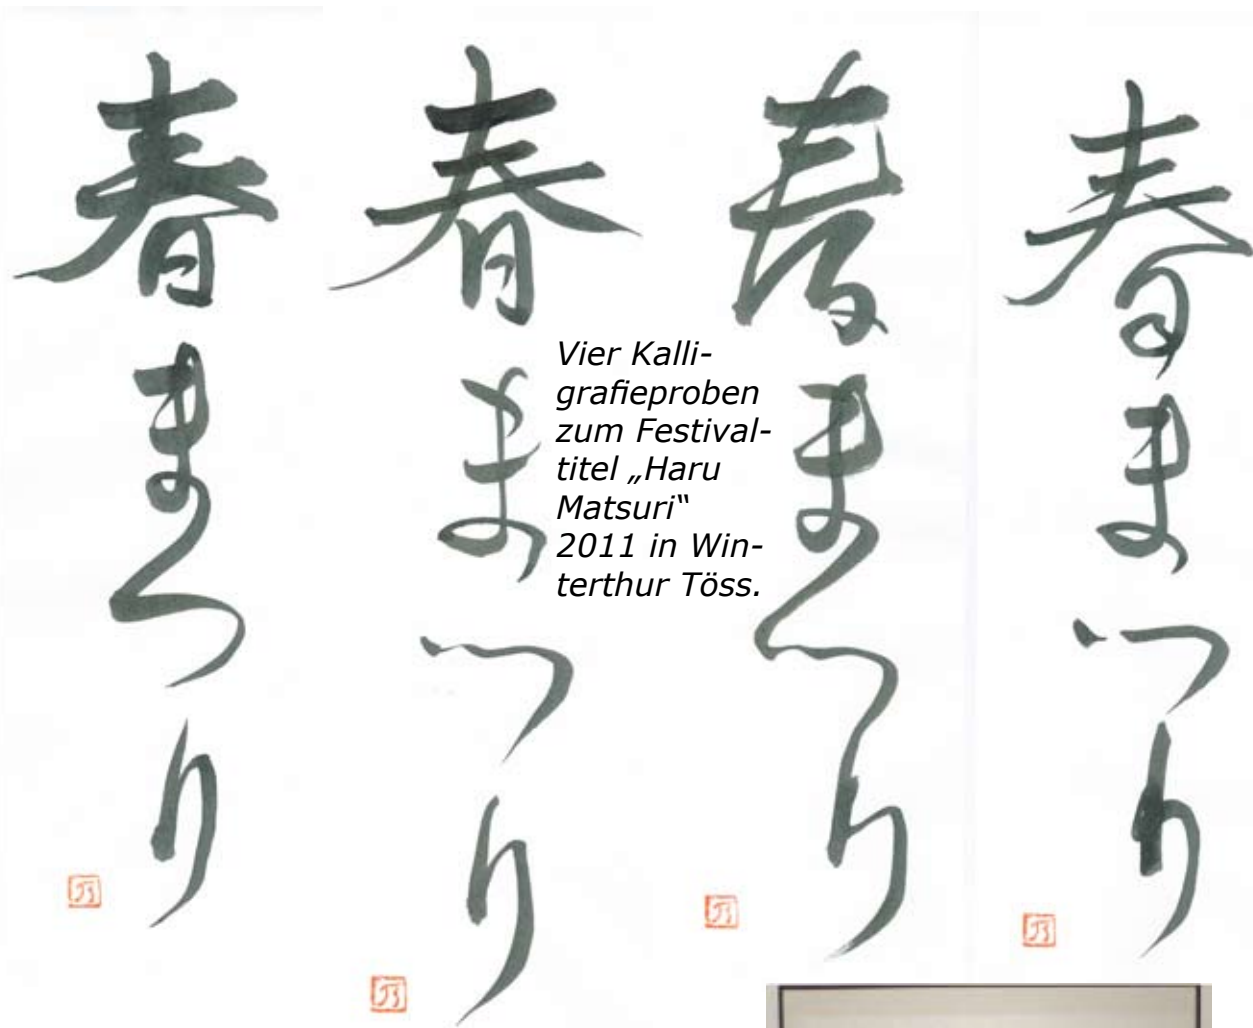 春まつり
春まつり
Vier Kalli-
grafieproben
zum Festival-
titel „Haru
Matsuri“
2011 in Win-
terthur Töss.
春まつり
春まつり